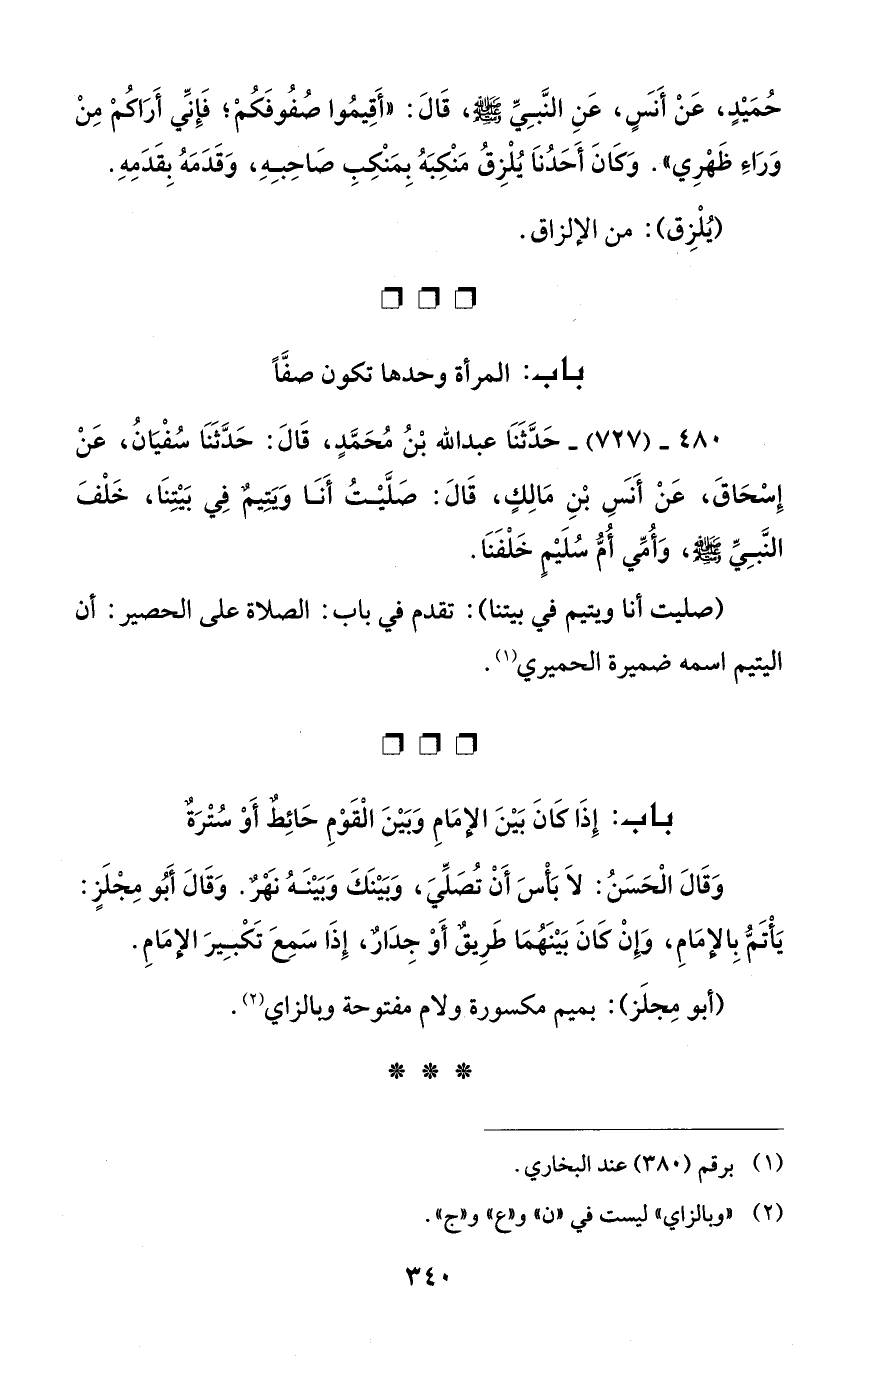 حُمَيْدٍ، عَنْ أَنَسٍ، عَنِ النَّبِيِّ ﷺ، قَالَ: «أَقِيمُوا صُفُوفَكُمْ؛ فَإِنِّي أَرَاكُمْ مِنْ
وَرَاءِ ظَهْرِي». وَكَانَ أَحَدُنَا يُلْزِقُ مَنْكِبَهُ بِمَنْكِبِ صَاحِبِهِ، وَقَدَمَهُ بِقَدَمِهِ.
(يُلْزِق): من الإلزاق.
❒ ❒ ❒
باب: المرأة وحدها تكون صفًّا
٤٨٠ ـ (٧٢٧) ـ حَدَّثَنَا عبدالله بْنُ مُحَمَّدٍ، قَالَ: حَدَّثَنَا سُفْيَانُ، عَنْ
إِسْحَاقَ، عَنْ أَنَسِ بْنِ مَالِكٍ، قَالَ: صَلَّيْتُ أَنَا وَيَتِيمٌ فِي بَيْتِنَا، خَلْفَ
النَّبِيِّ ﷺ، وَأُمِّي أُمُّ سُلَيْمٍ خَلْفَنَا.
(صليت أنا ويتيم في بيتنا): تقدم في باب: الصلاة على الحصير: أن
اليتيم اسمه ضميرة الحميري(١).
❒ ❒ ❒
باب: إِذَا كَانَ بَيْنَ الإِمَامِ وَبَيْنَ الْقَوْمِ حَائِطٌ أَوْ سُتْرَةٌ
وَقَالَ الْحَسَنُ: لاَ بَأْسَ أَنْ تُصَلِّيَ، وَبَيْنَكَ وَبَيْنَهُ نَهْرٌ. وَقَالَ أَبُو مِجْلَزٍ:
يَأْتَمُّ بِالإِمَامِ، وَإِنْ كَانَ بَيْنَهُمَا طَرِيقٌ أَوْ جِدَارٌ، إِذَا سَمِعَ تَكْبِيرَ الإِمَامِ.
(أبو مِجلَز): بميم مكسورة ولام مفتوحة وبالزاي(٢).
❊ ❊ ❊
(١) برقم (٣٨٠) عند البخاري.
(٢) «وبالزاي» ليست في «ن» و«ع» و«ج».
٣٤٠